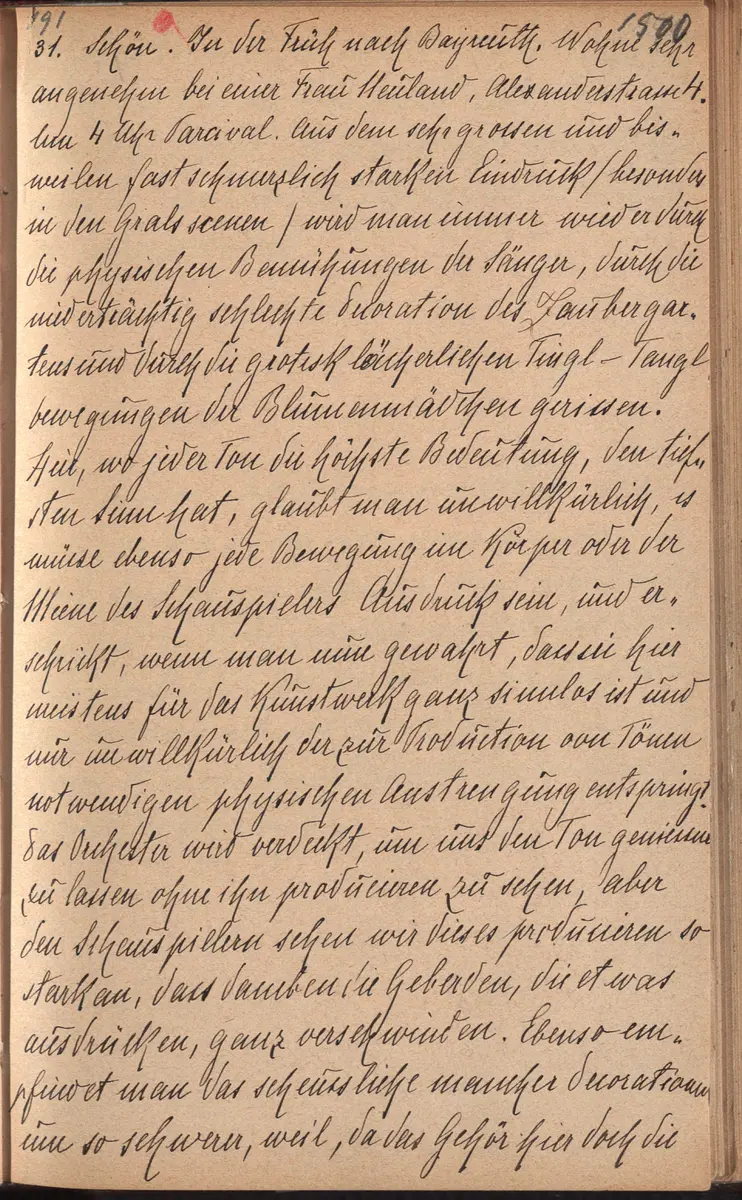 191 1500
31. Schön. In der Früh nach Bayreuth. Wohne sehr
angenehm bei einer Frau Heuland, Alexanderstrasse 4.
Um 4 Uhr Parcival. Aus dem sehr grossen und bis-
weilen fast schmerzlich starken Eindruck / besonders
in den Gralsscenen / wird man immer wieder durch
die physischen Bemühungen der Sänger, durch die
niederträchtig schlechte Decoration des Zaubergar-
tens und durch die grotesk lächerlichen Tingl-Tangl
bewegungen der Blumenmädchen gerissen.
Hier, wo jeder Ton die höchste Bedeutung, den tief-
sten Sinn hat, glaubt man unwillkürlich, es
müsse ebenso jede Bewegung im Körper oder der
Miene des Schauspielers Ausdruck sein, und er-
schrickt, wenn man nun gewahrt, dass sie hier
meistens für das Kunstwerk ganz sinnlos ist und
nur unwillkürlich der zur Production von Tönen
notwendigen physischen Anstrengung entspringt.
Das Orchester wird verdeckt, um uns den Ton geniessen
zu lassen ohne ihn producieren zu sehen, aber
den Schauspielern sehen wir dieses producieren so
stark an, dass daneben die Geberden, die etwas
ausdrücken, ganz verschwinden. Ebenso em-
pfindet man das scheussliche mancher Decorationen
um so schwerer, weil, da das Gehör hier doch die